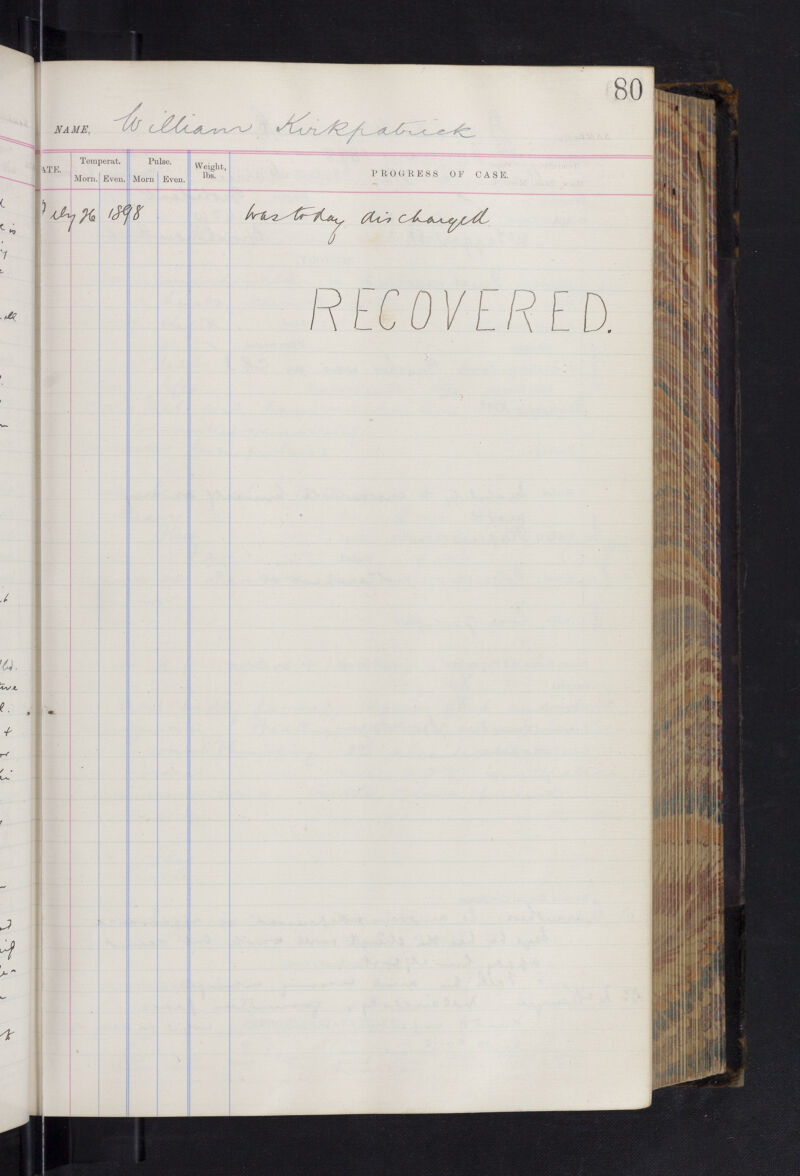 80
NAME, William Kirkpatrick
ATE. Temperat. Pulse. Weight, lbs. PROGRESS OF CASE.
Morn. Even. Morn Even.
July 26 1898 Was today discharged
RECOVERED.